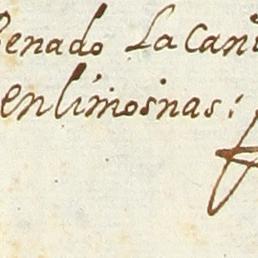 Senado La Can
en limosnas: